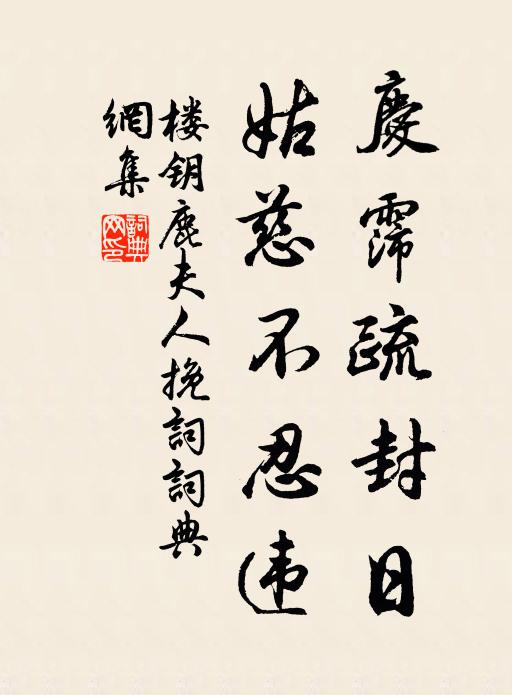 慶霈疏封日
姑慈不忍违
楼钥鹿夫人挽詞詞典
網集
詞典
网印